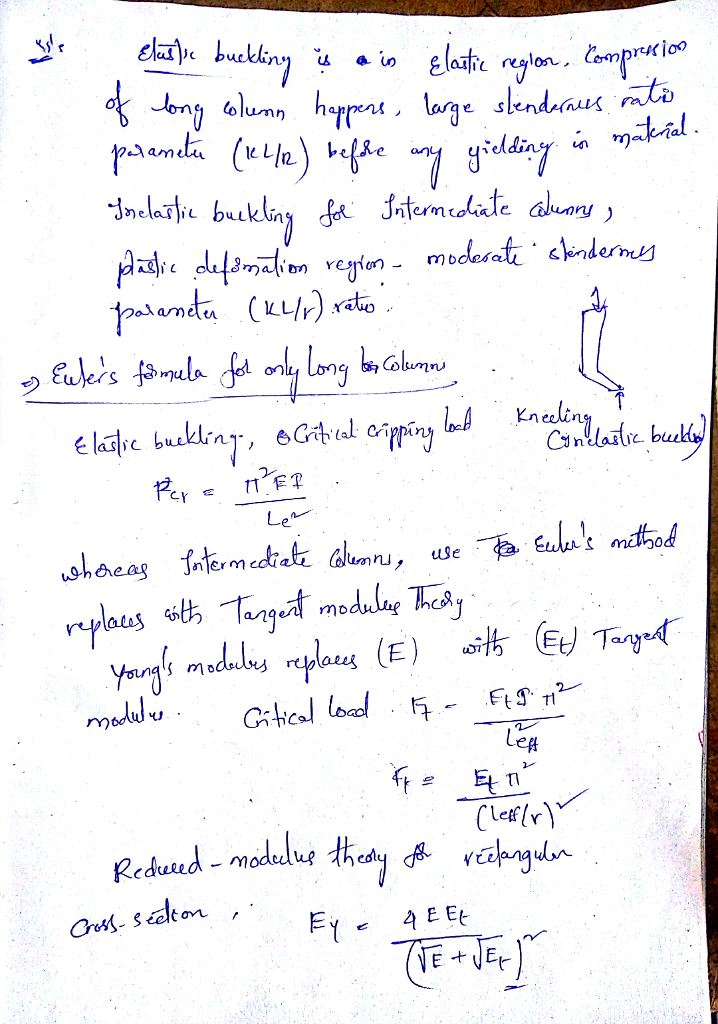 Elastic buckling is in Elastic region, Compression
of long column happens, large slenderness ratio
parameter (KL/r) before any yielding in material.
Inelastic buckling for Intermediate columns,
plastic deformation region - moderate slenderness
parameter (KL/r) ratio.
⇒ Euler's formula for only Long Columns
Elastic buckling, Critical cripping load
Kneeling
(Inelastic buckling)
Pcr = π²EI / Le²
whereas Intermediate Columns, use Euler's method
replaces with Tangent modulus Theory
Young's modulus replaces (E) with (Et) Tangent
modulus. Critical load Ft = EtIπ² / L²eff
Ft = Etπ² / (Leff/r)²
Reduced-modulus theory for rectangular
Cross-section, Ey = 4EEt / (√E + √Et)²